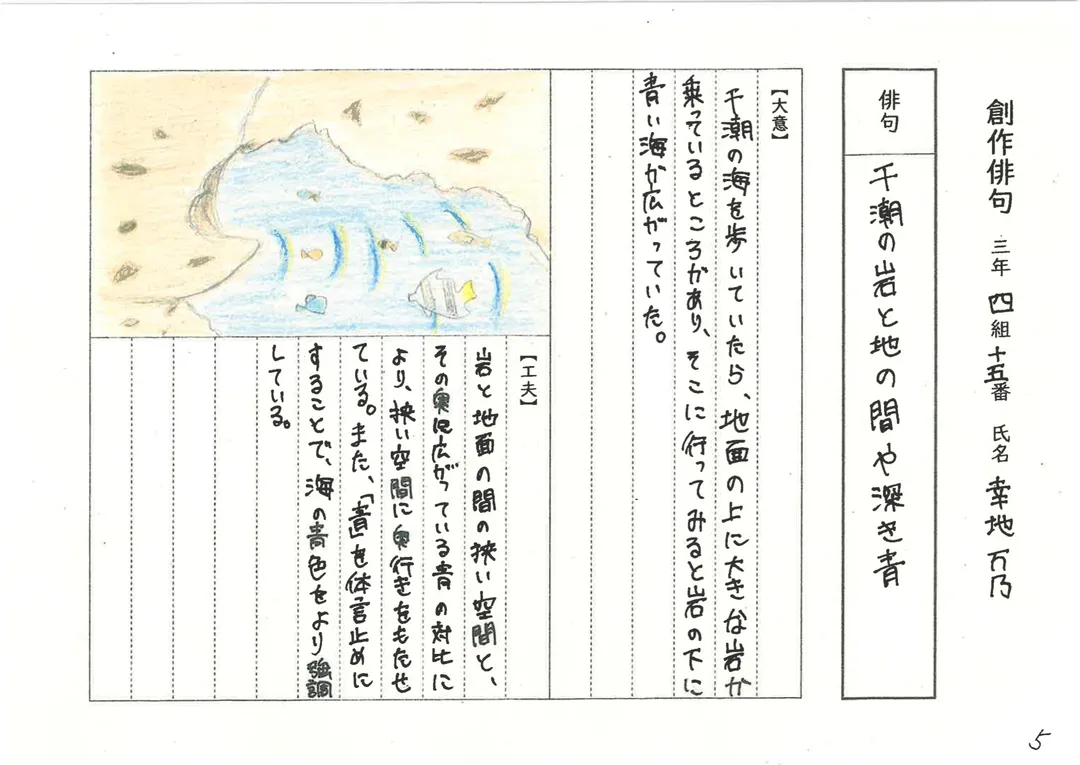 創作俳句 三年 四組 十五番 氏名 幸地 万乃
俳句 干潮の岩と地の間や深き青
【大意】
干潮の海を歩いていたら、地面の上に大きな岩が
乗っているところがあり、そこに行ってみると岩の下に
青い海が広がっていた。
【工夫】
岩と地面の間の狭い空間と、
その奥に広がっている青の対比に
より、狭い空間に奥行きをもたせ
ている。また、「青」を体言止めに
することで、海の青色をより強調
している。
5